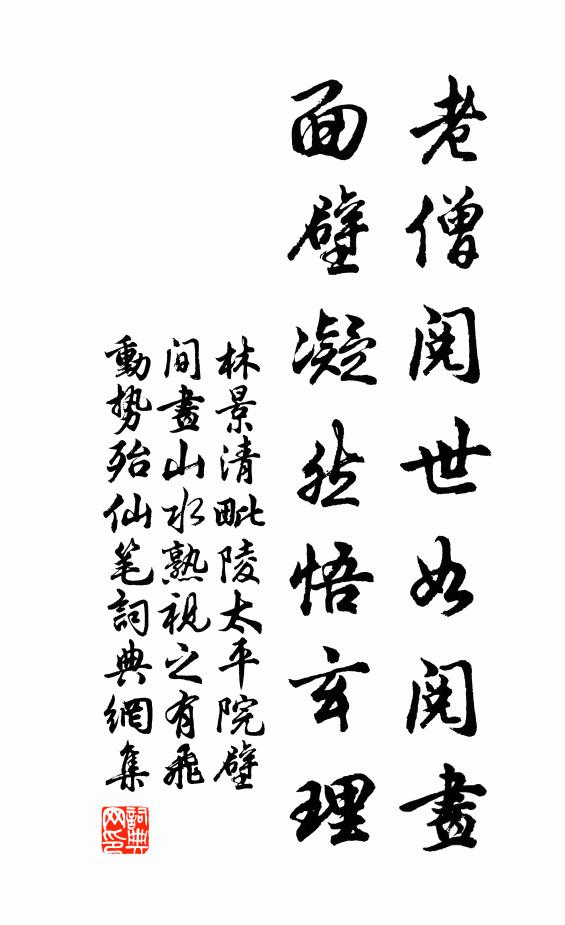 老僧閱世如閱畫
面壁凝然悟玄理
林景清毗陵太平院壁
間畫山水熟視之有飛
動勢殆仙笔詞典網集
詞典
网印